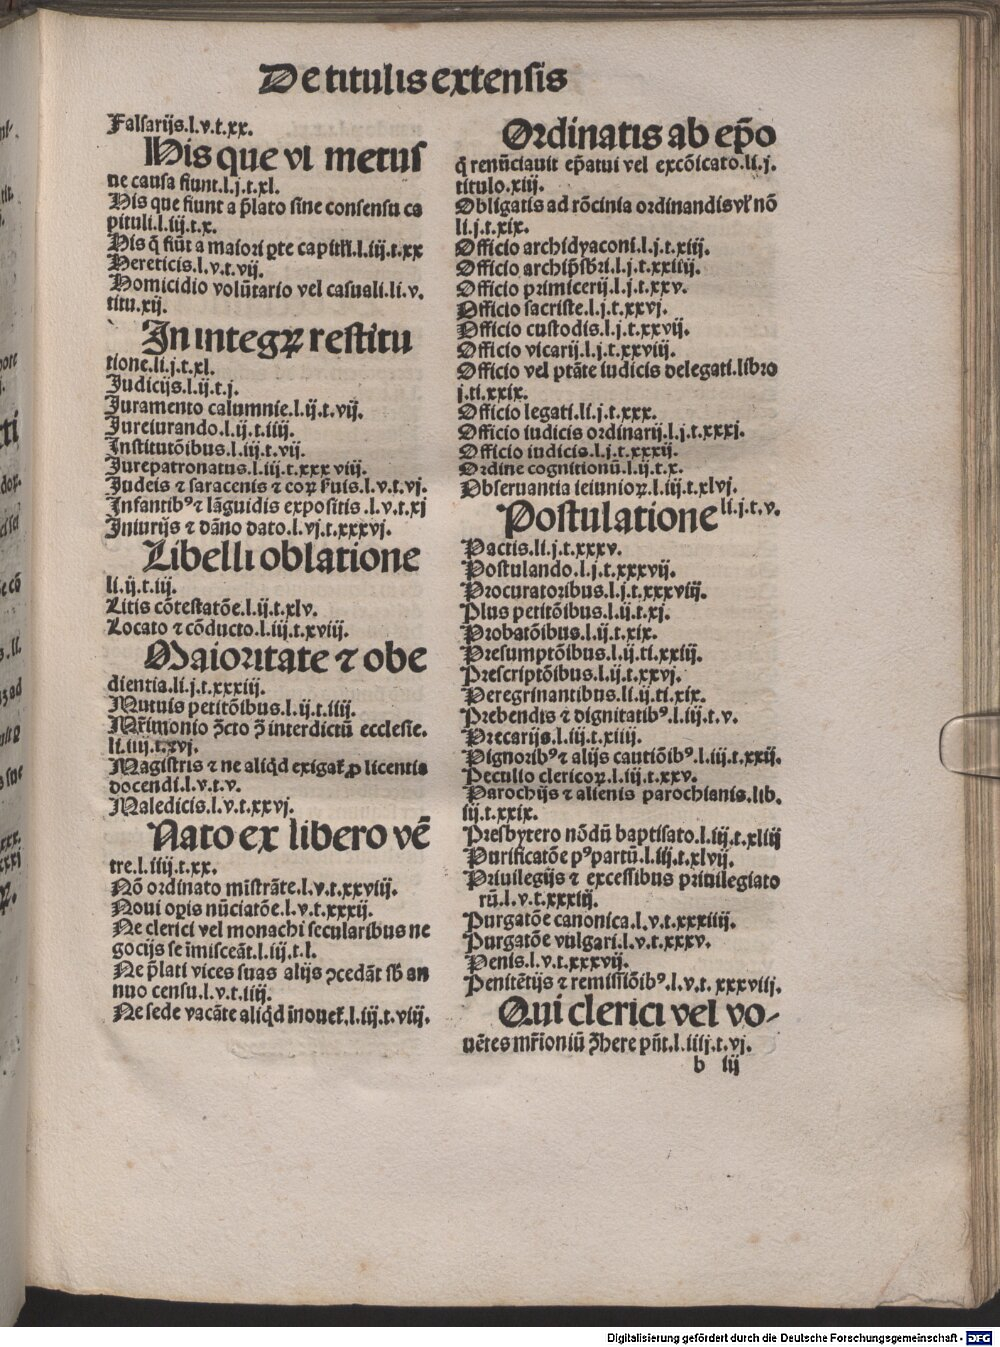 De titulis extensis
Falsarijs.l.v.t.xx.
His que vi metus
ne causa fiunt.l.j.t.xl.
His que fiunt a p̄lato sine consensu ca
pituli.l.iij.t.x.
His q̄ fiūt a maiori ꝑte capitłi.l.iij.t.xx
Hereticis.l.v.t.vij.
Homicidio volūtario vel casuali.li.v.
titu.xij.
In integꝝ restitu
tione.li.j.t.xl.
Judicijs.l.ij.t.j.
Juramento calumnie.l.ij.t.vij.
Jureiurando.l.ij.t.iiij.
Institutōibus.l.iij.t.vij.
Jurepatronatus.l.iij.t.xxx viij.
Judeis ⁊ saracenis ⁊ coꝝ ſ̄uis.l.v.t.vj.
Infantibꝰ ⁊ lāguidis expositis .l.v.t.xj
Iniurijs ⁊ dāno dato.l.vj.t.xxxvj.
Libelli oblatione
li.ij.t.iij.
Litis cōtestatōe.l.ij.t.xlv.
Locato ⁊ cōducto.l.iij.t.xviij.
Maioritate ⁊ obe
dientia.li.j.t.xxxiij.
Mutuis petitōibus.l.ij.t.iiij.
Mr̄imonio ꝯ̄cto ꝯ̄ interdictū ecclesie.
li.iiij.t.xvj.
Magistris ⁊ ne aliq̇d exigat̄ ꝓ licentia
docendi.l.v.t.v.
Maledicis.l.v.t.xxvj.
Nato ex libero vē
tre.l.iiij.t.xx.
Nō ordinato mīstrāte.l.v.t.xxviij.
Noui oꝑis nūciatōe.l.v.t.xxxij.
Ne clerici vel monachi secularibus ne
gocijs se īmisceāt.l.iij.t.l.
Ne p̄lati vices suas alijs ꝯcedāt sb̄ an
nuo censu.l.v.t.iiij.
Ne sede vacāte aliq̇d īnouet̄.l.iij.t.viij.
Ordinatis ab ep̄o
q̄ renūciauit ep̄atui vel excōicato.li.j.
titulo.xiij.
Obligatis ad rōcinia ordinandis vł nō
li.j.t.xix.
Officio archidyaconi.l.j.t.xiij.
Officio archip̄sb̄ri.l.j.t.xxiiij.
Officio primicerij.l.j.t.xxv.
Officio sacriste.l.j.t.xxvj.
Officio custodis.l.j.t.xxvij.
Officio vicarij.l.j.t.xxviij.
Officio vel ptāte iudicis delegati.libro
j.ti.xxix.
Officio legati.li.j.t.xxx.
Officio iudicis ordinarij.l.j.t.xxxj.
Officio iudicis.l.j.t.xxxij.
Ordine cognitionū.l.ij.t.x.
Obseruantia ieiunioꝝ.l.iij.t.xlvj.
Postulatione li.j.t.v.
Pactis.li.j.t.xxxv.
Postulando.l.j.t.xxxvij.
Procuratoribus.l.j.t.xxxviij.
Plus petitōibus.l.ij.t.xj.
Probatōibus.l.ij.t.xix.
Presumptōibus.l.ij.ti.xxiij.
Prescriptōibus.l.ij.t.xxvj.
Peregrinantibus.li.ij.ti.xix.
Prebendis ⁊ dignitatibꝰ.l.iij.t.v.
Precarijs.l.iij.t.xiiij.
Pignoribꝰ ⁊ alijs cautiōibꝰ.l.iij.t.xxij.
Peculio clericoꝝ.l.iij.t.xxv.
Parochijs ⁊ alienis parochianis.lib.
iij.t.xxix.
Presbytero nōdū baptisato.l.iij.t.xliij
Purificatōe pꝰ partū.l.iij.t.xlvij.
Priuilegijs ⁊ excessibus priuilegiato
rū.l.v.t.xxxiij.
Purgatōe canonica.l.v.t.xxxiiij.
Purgatōe vulgari.l.v.t.xxxv.
Penis.l.v.t.xxxvij.
Penitētijs ⁊ remissiōibꝰ.l.v.t.xxxviij.
Qui clerici vel vo-
uētes mr̄ioniū ꝯ̄here pn̄t.l.iiij.t.vj.
b iij
Digitalisierung gefördert durch die Deutsche Forschungsgemeinschaft - DFG